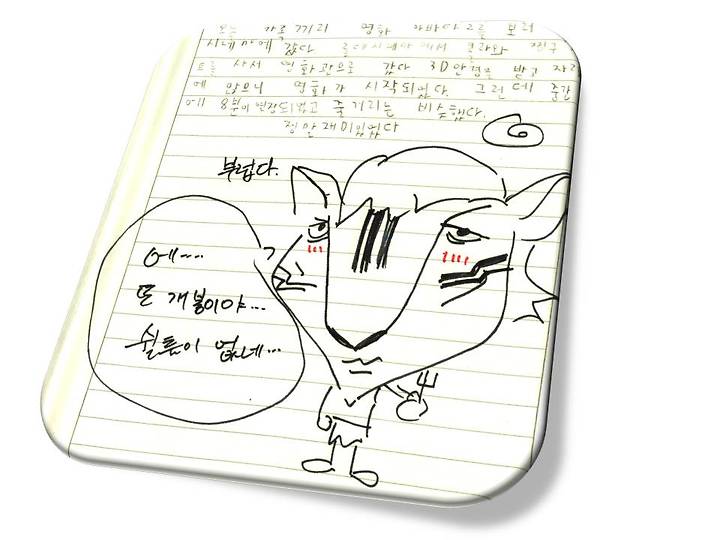 오늘 끼리 영화 보러
시네마에 갔다. 롯데시네마에서 콜라와
트를 사서 영화관으로 갔다 3D안경을 받고 자리
에 앉으니 영화가 시작되었다. 그런데 중간
에 8분이 연장되었고 줄거리는 비슷했다.
정말 재미있었다
부럽다.
에...
또 개봉이야...
쉴틈이 없네...